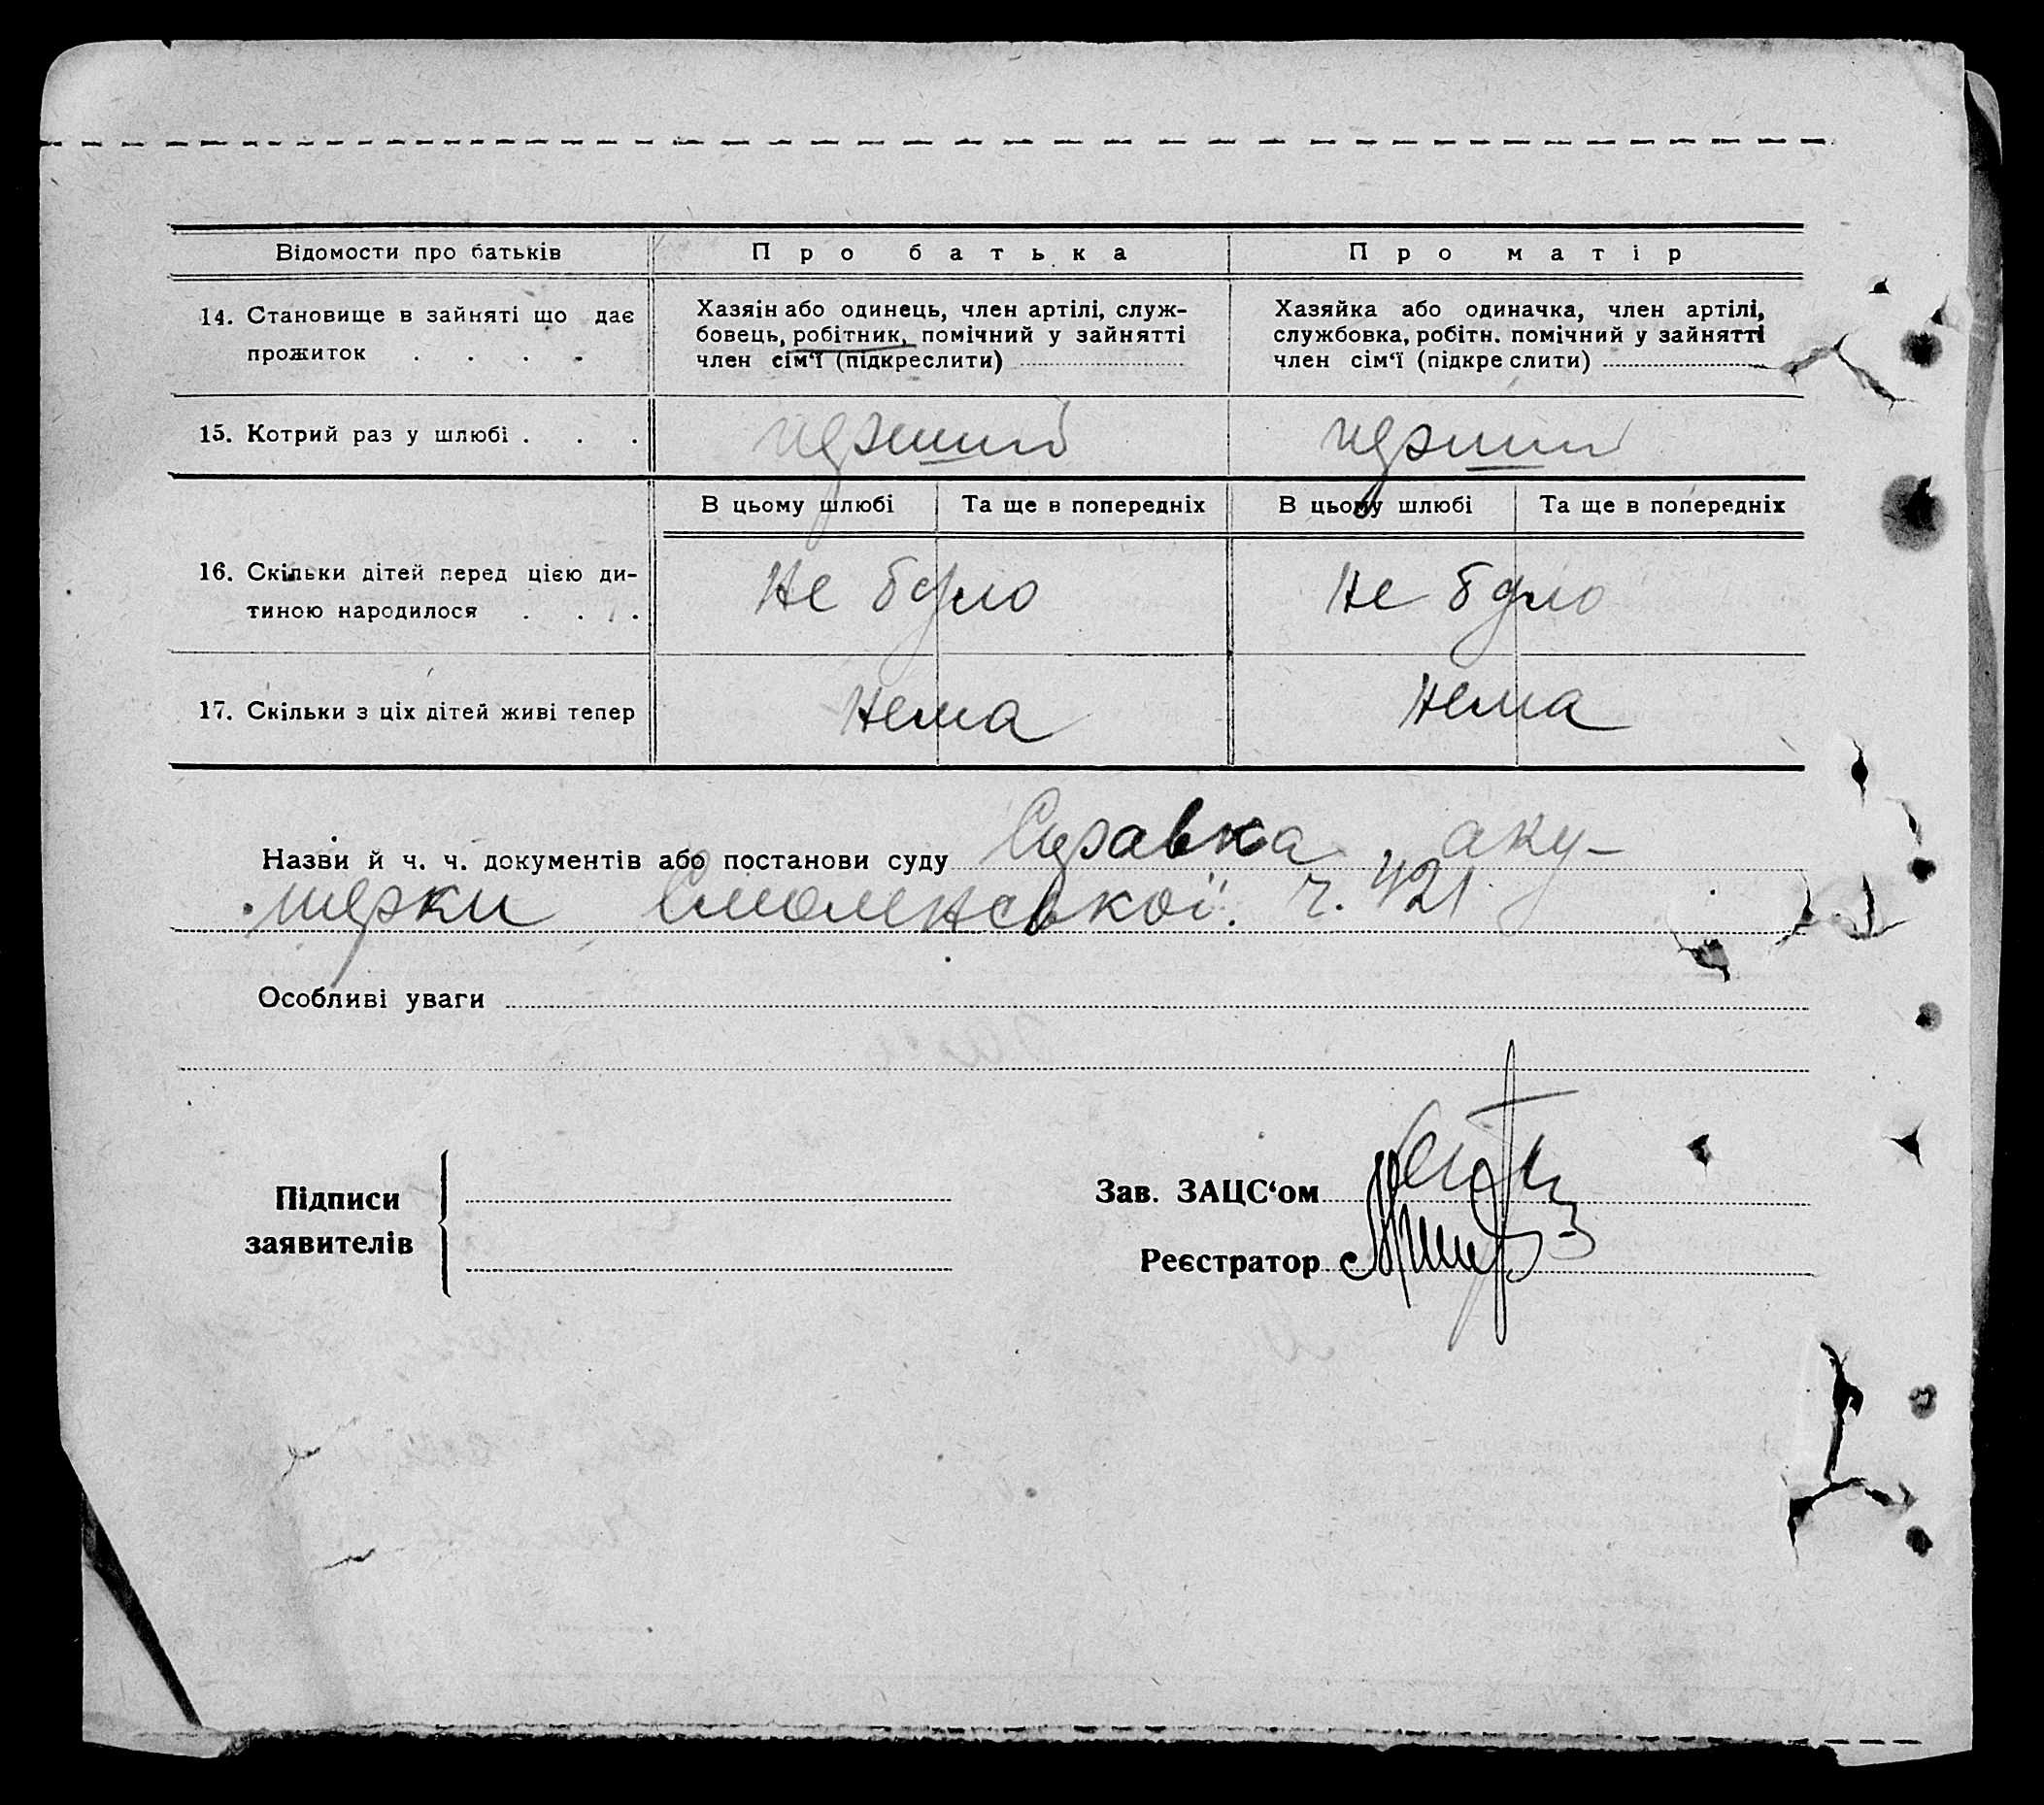 Відомости про батьків Про батька Про матір
14. Становище в зайняті що дає
прожиток . . . .
Хазяін або одинець, член артілі, служ-
бовець, робітник, помічний у зайнятті
член сім‘ї (підкреслити)
Хазяйка або одиначка, член артілі,
службовка, робітн. помічний у зайнятті
член сім‘ї (підкре слити)
15. Котрий раз у шлюбі . . . перший перший
В цьому шлюбі Та ще в попередніх В цьому шлюбі Та ще в попередніх
16. Скільки дітей перед цією ди-
тиною народилося . . .
Не було Не було
17. Скільки з ціх дітей живі тепер Нема Нема
Назви й ч. ч. документів або постанови суду Справка аку-
шерки Смоленської. ч. 421
Особливі уваги
Підписи
заявителів
Зав. ЗАЦС‘ом
Реєстратор